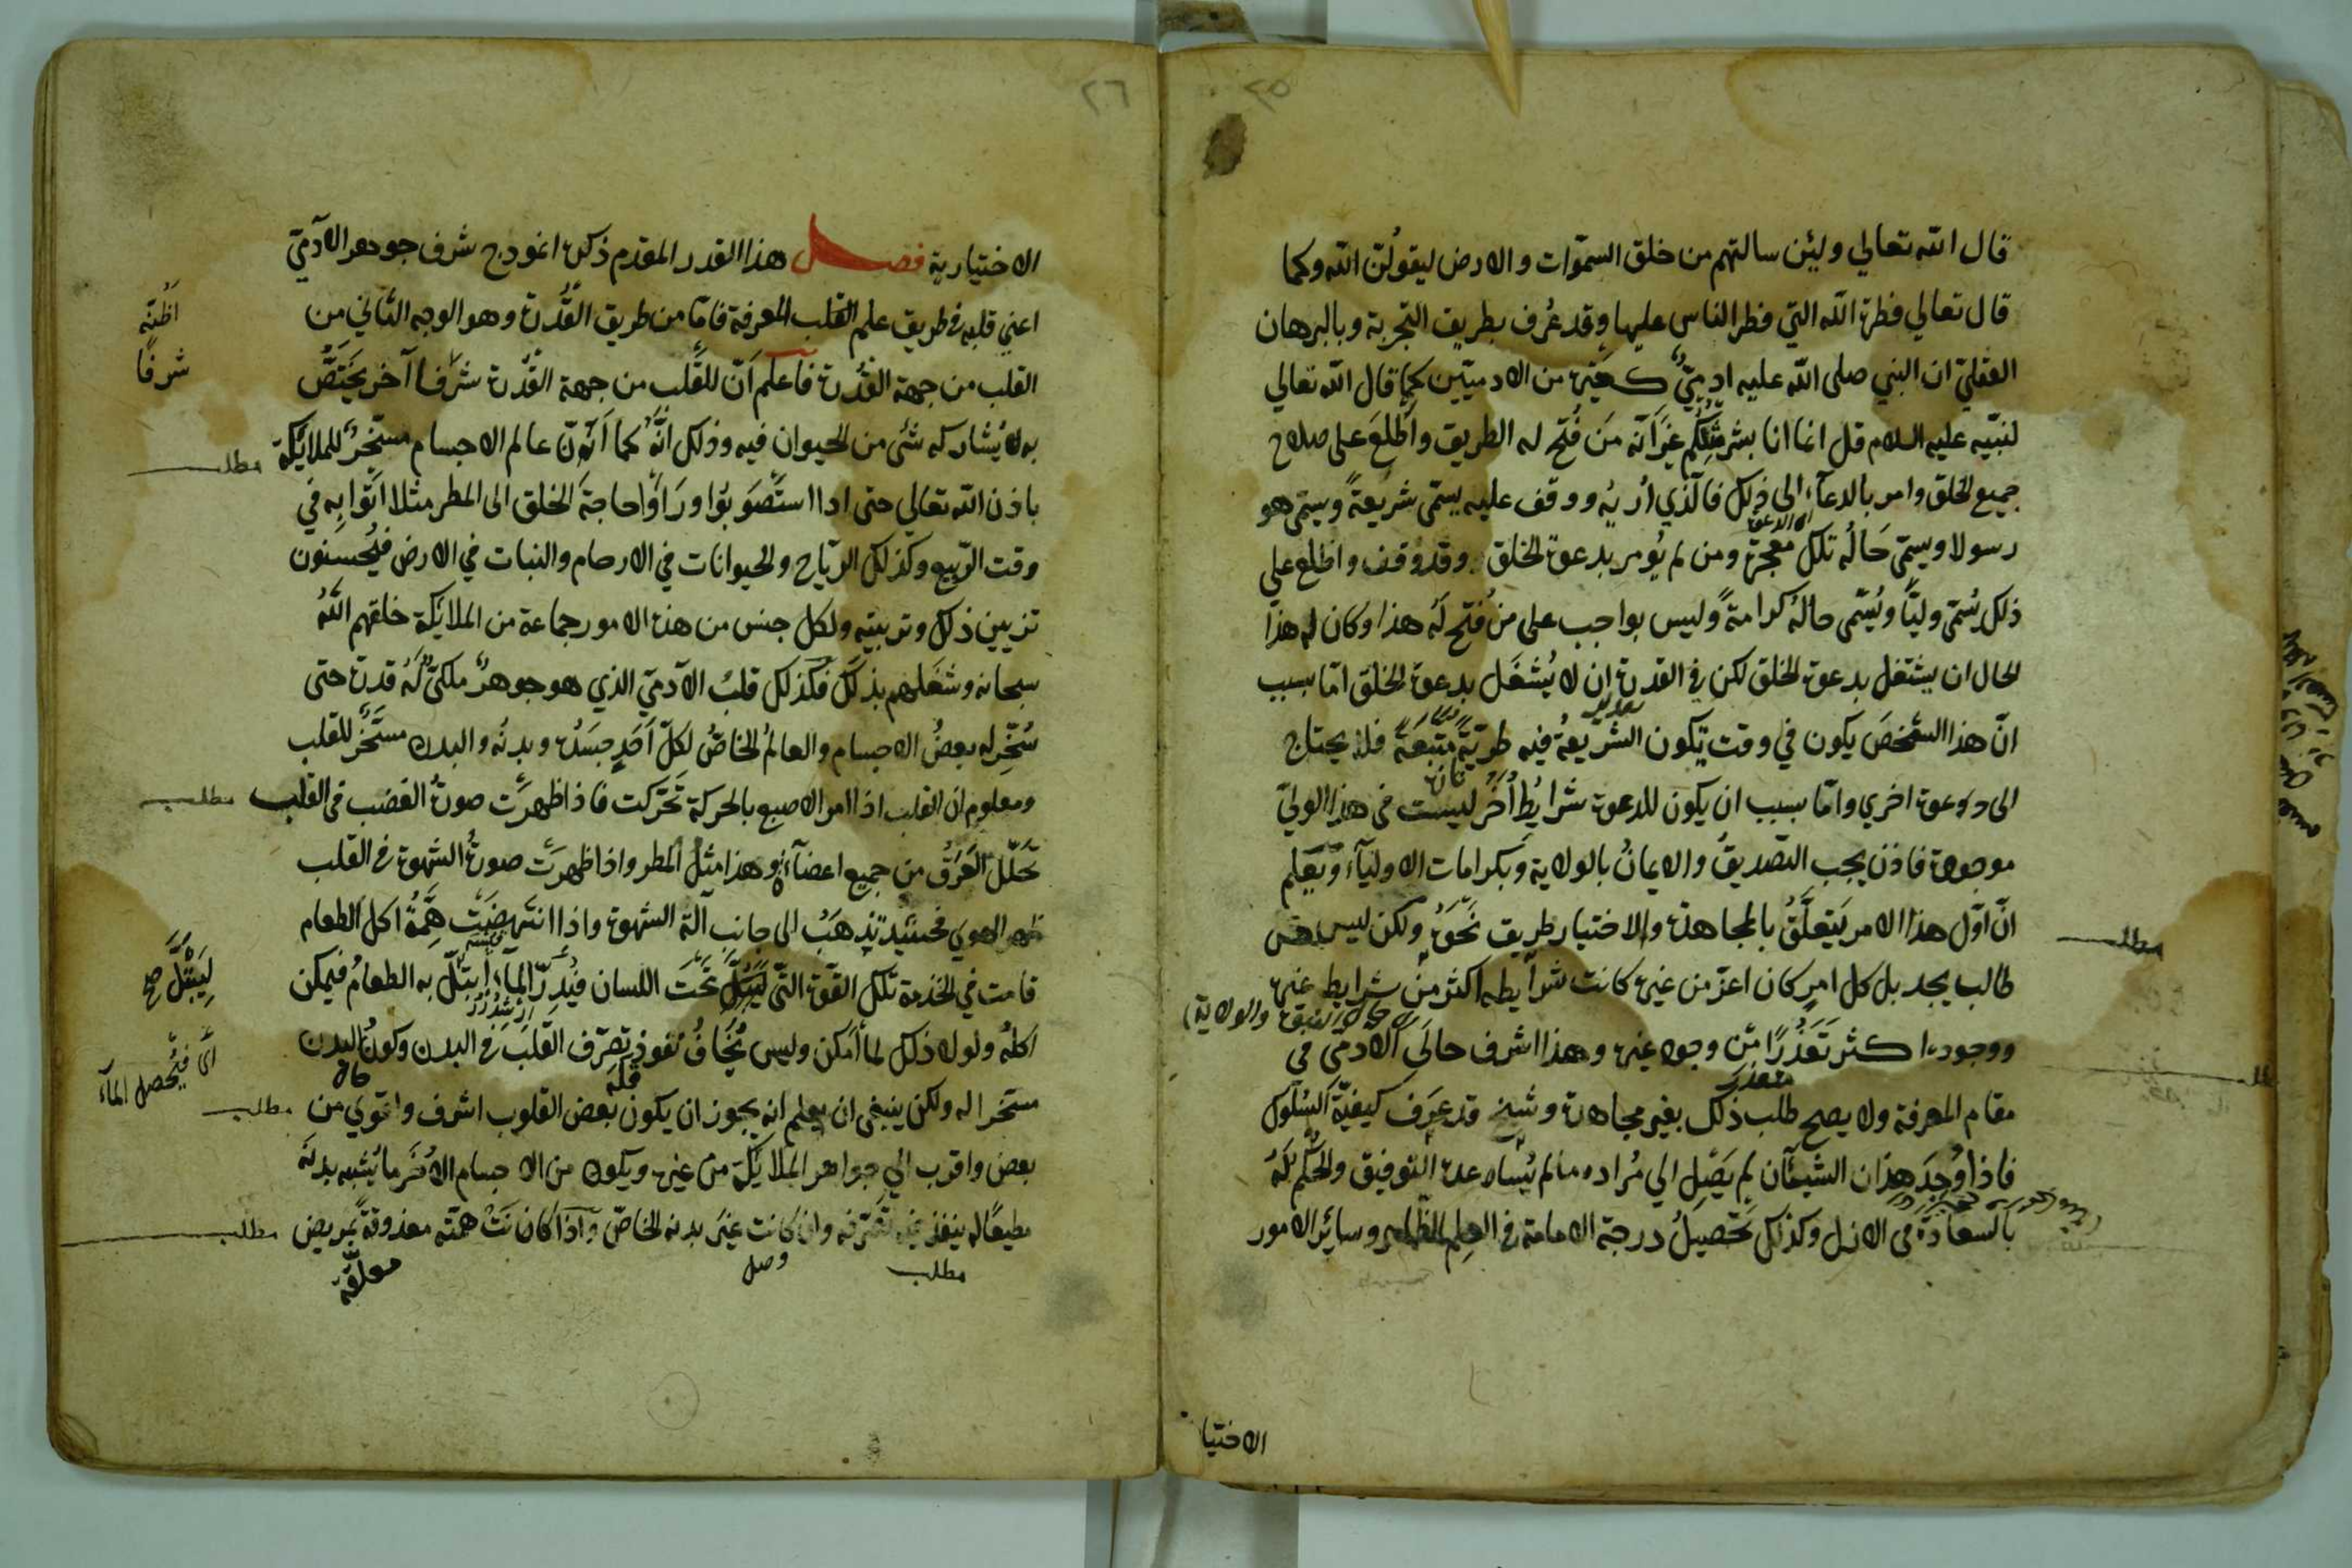 ٢٥
قال الله تعالي ولئن سالتهم من خلق السموات والارض ليقولن الله وكما
قال تعالي فطرة الله التي فطر الناس عليها وقد عرف بطريق التجربة وبالبرهان
العقلي ان النبي صلى الله عليه ادمي كغيره من الادميين كما قال الله تعالي
لنبيه عليه السلام قل انما انا بشر مثلكم غير انه من فتح له الطريق واطلع على صلاح
جميع الخلق وامر بالدعاء الى ذلك فالذي اريه ووقف عليه يسمى شريعة ويسمى هو
رسولا ويسمى حاله تلك معجزة ومن لم يؤمر بدعوة الخلق وقد وقف واطلع علي
ذلك يسمى وليا ويسمى حاله كرامة وليس بواجب على من فتح له هذا وكان له هذا
الحال ان يشتغل بدعوة الخلق لكن في القدرة ان لا يشغل بدعوة الخلق اما بسبب
ان هذا الشخص يكون في وقت تكون الشريعة فيه طرية متبعة فلا يحتاج
الى دعوة اخري واما بسبب ان يكون للدعوة شرايط اخر ليست في هذا الولي
موجودة فاذن يجب التصديق والايمان بالولاية وبكرامات الاولياء ويعلم
ان اول هذا الامر يتعلق بالمجاهدة والاختيار طريق نحوه ولكن ليس
طالب يجد بل كل امر كان اعز من غيره كانت شرايطه اكثر من شرايط غيره
ووجوده اكثر تعذرا من وجود غيره وهذا اشرف حالي الادمي في
مقام المعرفة ولا يصح طلب ذلك بغير مجاهدة وشيخ قد عرف كيفية السلوك
فاذا وجد هذان الشيئان لم يصل الي مراده ما لم يساعده التوفيق والحكم له
بالسعادة في الازل وكذلك تحصيل درجة الامامة في العلم الظاهر وسائر الامور
مطلب
الاختيا
٢٦
الاختيارية فصل هذا القدر المقدم ذكره انموذج شرف جوهر الادمي
اعني قلبه في طريق علم القلب المعرفة فاما من طريق القدرة وهو الوجه الثاني من
القلب من جهة القدرة فاعلم ان للقلب من جهة القدرة شرفا آخر يختص
به لا يشاركه شئ من الحيوان فيه وذلك انه كما ان عالم الاجسام مسخر للملائكة
باذن الله تعالي حتى اذا استصوبوا وراوا حاجة الخلق الى المطر مثلا اتوا به في
وقت الربيع وكذلك الرياح والحيوانات في الارحام والنبات في الارض فيحسنون
تزيين ذلك وتربيته ولكل جنس من هذه الامور جماعة من الملائكة خلقهم الله
سبحانه وشغلهم بذلك فكذلك قلب الآدمي الذي هو جوهر ملكي له قدرة حتى
سخر له بعض الاجسام والعالم الخاص لكل احد جسده وبدنه والبدن مسخر للقلب
ومعلوم ان القلب اذا امر الاصبع بالحركة تحركت فاذا ظهرت صورة الغضب في القلب
تحلل العرق من جميع اعضائه وهذا مثل المطر واذا ظهرت صورة الشهوة في القلب
ظهر الهوي فحينئذ تذهب الى جانب آلة الشهوة واذا انتهضت همة اكل الطعام
قامت في الخدمة تلك القوة التي تحت اللسان فيدر الماء ابتل به الطعام فيمكن
اكله ولولا ذلك لما امكن وليس يخاف نفوذ تصرف القلب في البدن وكون البدن
مسخرا له ولكن ينبغي ان يعلم انه يجوز ان يكون بعض القلوب اشرف واقوي من
بعض واقرب الي جواهر الملائكة من غيره ويكون من الاجسام الاخر ما يشبه بدنه
مطيعا له ينفذ فيه تصرفه وان كانت غير بدنه الخاص واذا كانت همته معذوقة بمريض
مطلب
وصل
معلقة
اظنه
شرفا
مطلب
مطلب
ليبتل صح
اى فيحصل الماء
مطلب
مطلب